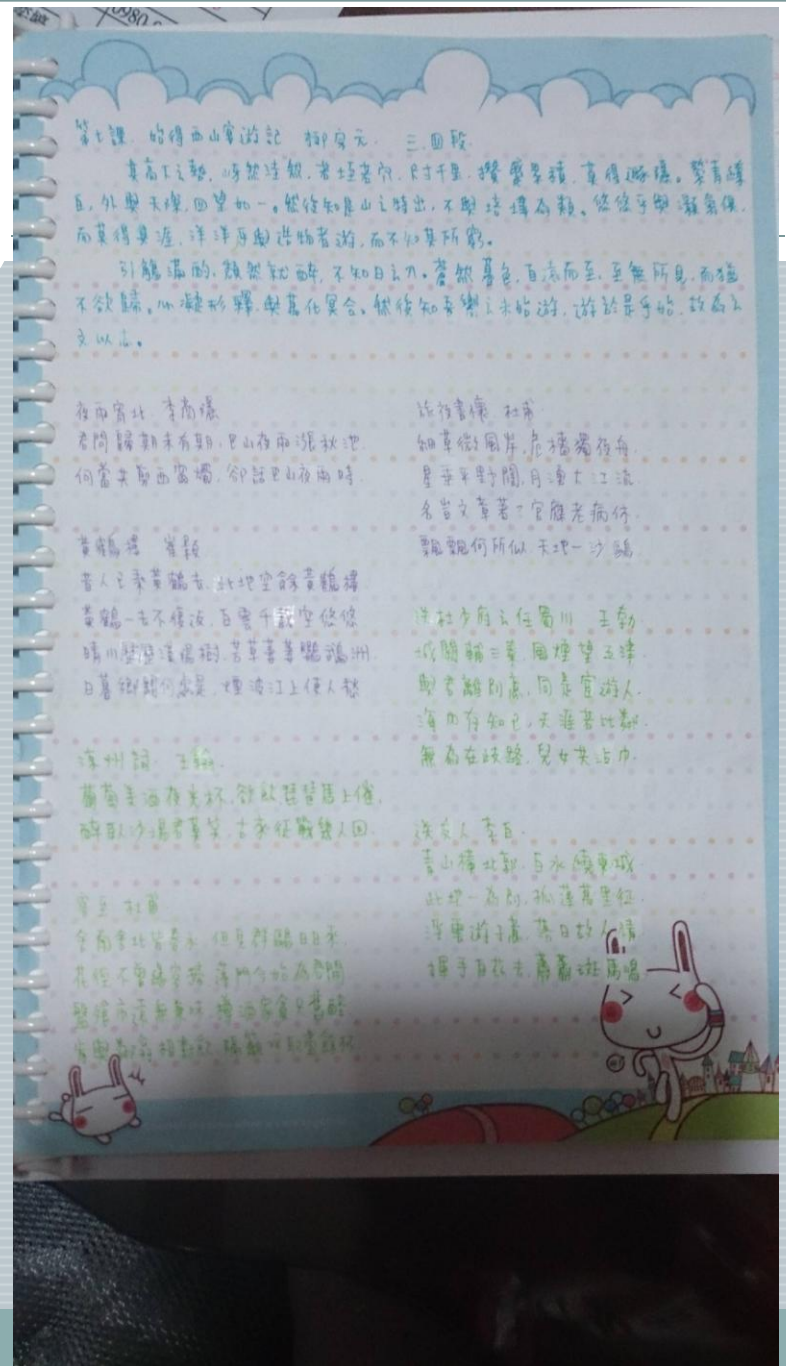 0980
第七課 始得西山宴遊記 柳宗元 三.四段
其高下之勢,岈然洼然,若垤若穴,尺寸千里,攢蹙累積,莫得遯隱。縈青繚
白,外與天際,四望如一。然後知是山之特出,不與培塿為類。悠悠乎與灝氣俱,
而莫得其涯,洋洋乎與造物者遊,而不知其所窮。
引觴滿酌,頹然就醉,不知日之入。蒼然暮色,自遠而至,至無所見,而猶
不欲歸。心凝形釋,與萬化冥合。然後知吾嚮之未始遊,遊於是乎始,故為之
文以志。
夜雨寄北 李商隱
君問歸期未有期,巴山夜雨漲秋池.
何當共剪西窗燭,卻話巴山夜雨時.
黃鶴樓 崔顥
昔人已乘黃鶴去,此地空餘黃鶴樓
黃鶴一去不復返,白雲千載空悠悠
晴川歷歷漢陽樹,芳草萋萋鸚鵡洲.
日暮鄉關何處是,煙波江上使人愁
涼州詞 王翰.
葡萄美酒夜光杯,欲飲琵琶馬上催,
醉臥沙場君莫笑,古來征戰幾人回.
客至 杜甫
舍南舍北皆春水,但見群鷗日日來.
花徑不曾緣客掃,蓬門今始為君開
盤飧市遠無兼味,樽酒家貧只舊醅
肯與鄰翁相對飲,隔籬呼取盡餘杯
旅夜書懷 杜甫
細草微風岸,危檣獨夜舟.
星垂平野闊,月湧大江流
名豈文章著?官應老病休.
飄飄何所似,天地一沙鷗.
送杜少府之任蜀川 王勃
城闕輔三秦,風煙望五津.
與君離別意,同是宦遊人.
海內存知己,天涯若比鄰.
無為在歧路,兒女共沾巾.
送友人 李白.
青山橫北郭,白水繞東城
此地一為別,孤蓬萬里征
浮雲遊子意,落日故人情
揮手自茲去,蕭蕭班馬鳴